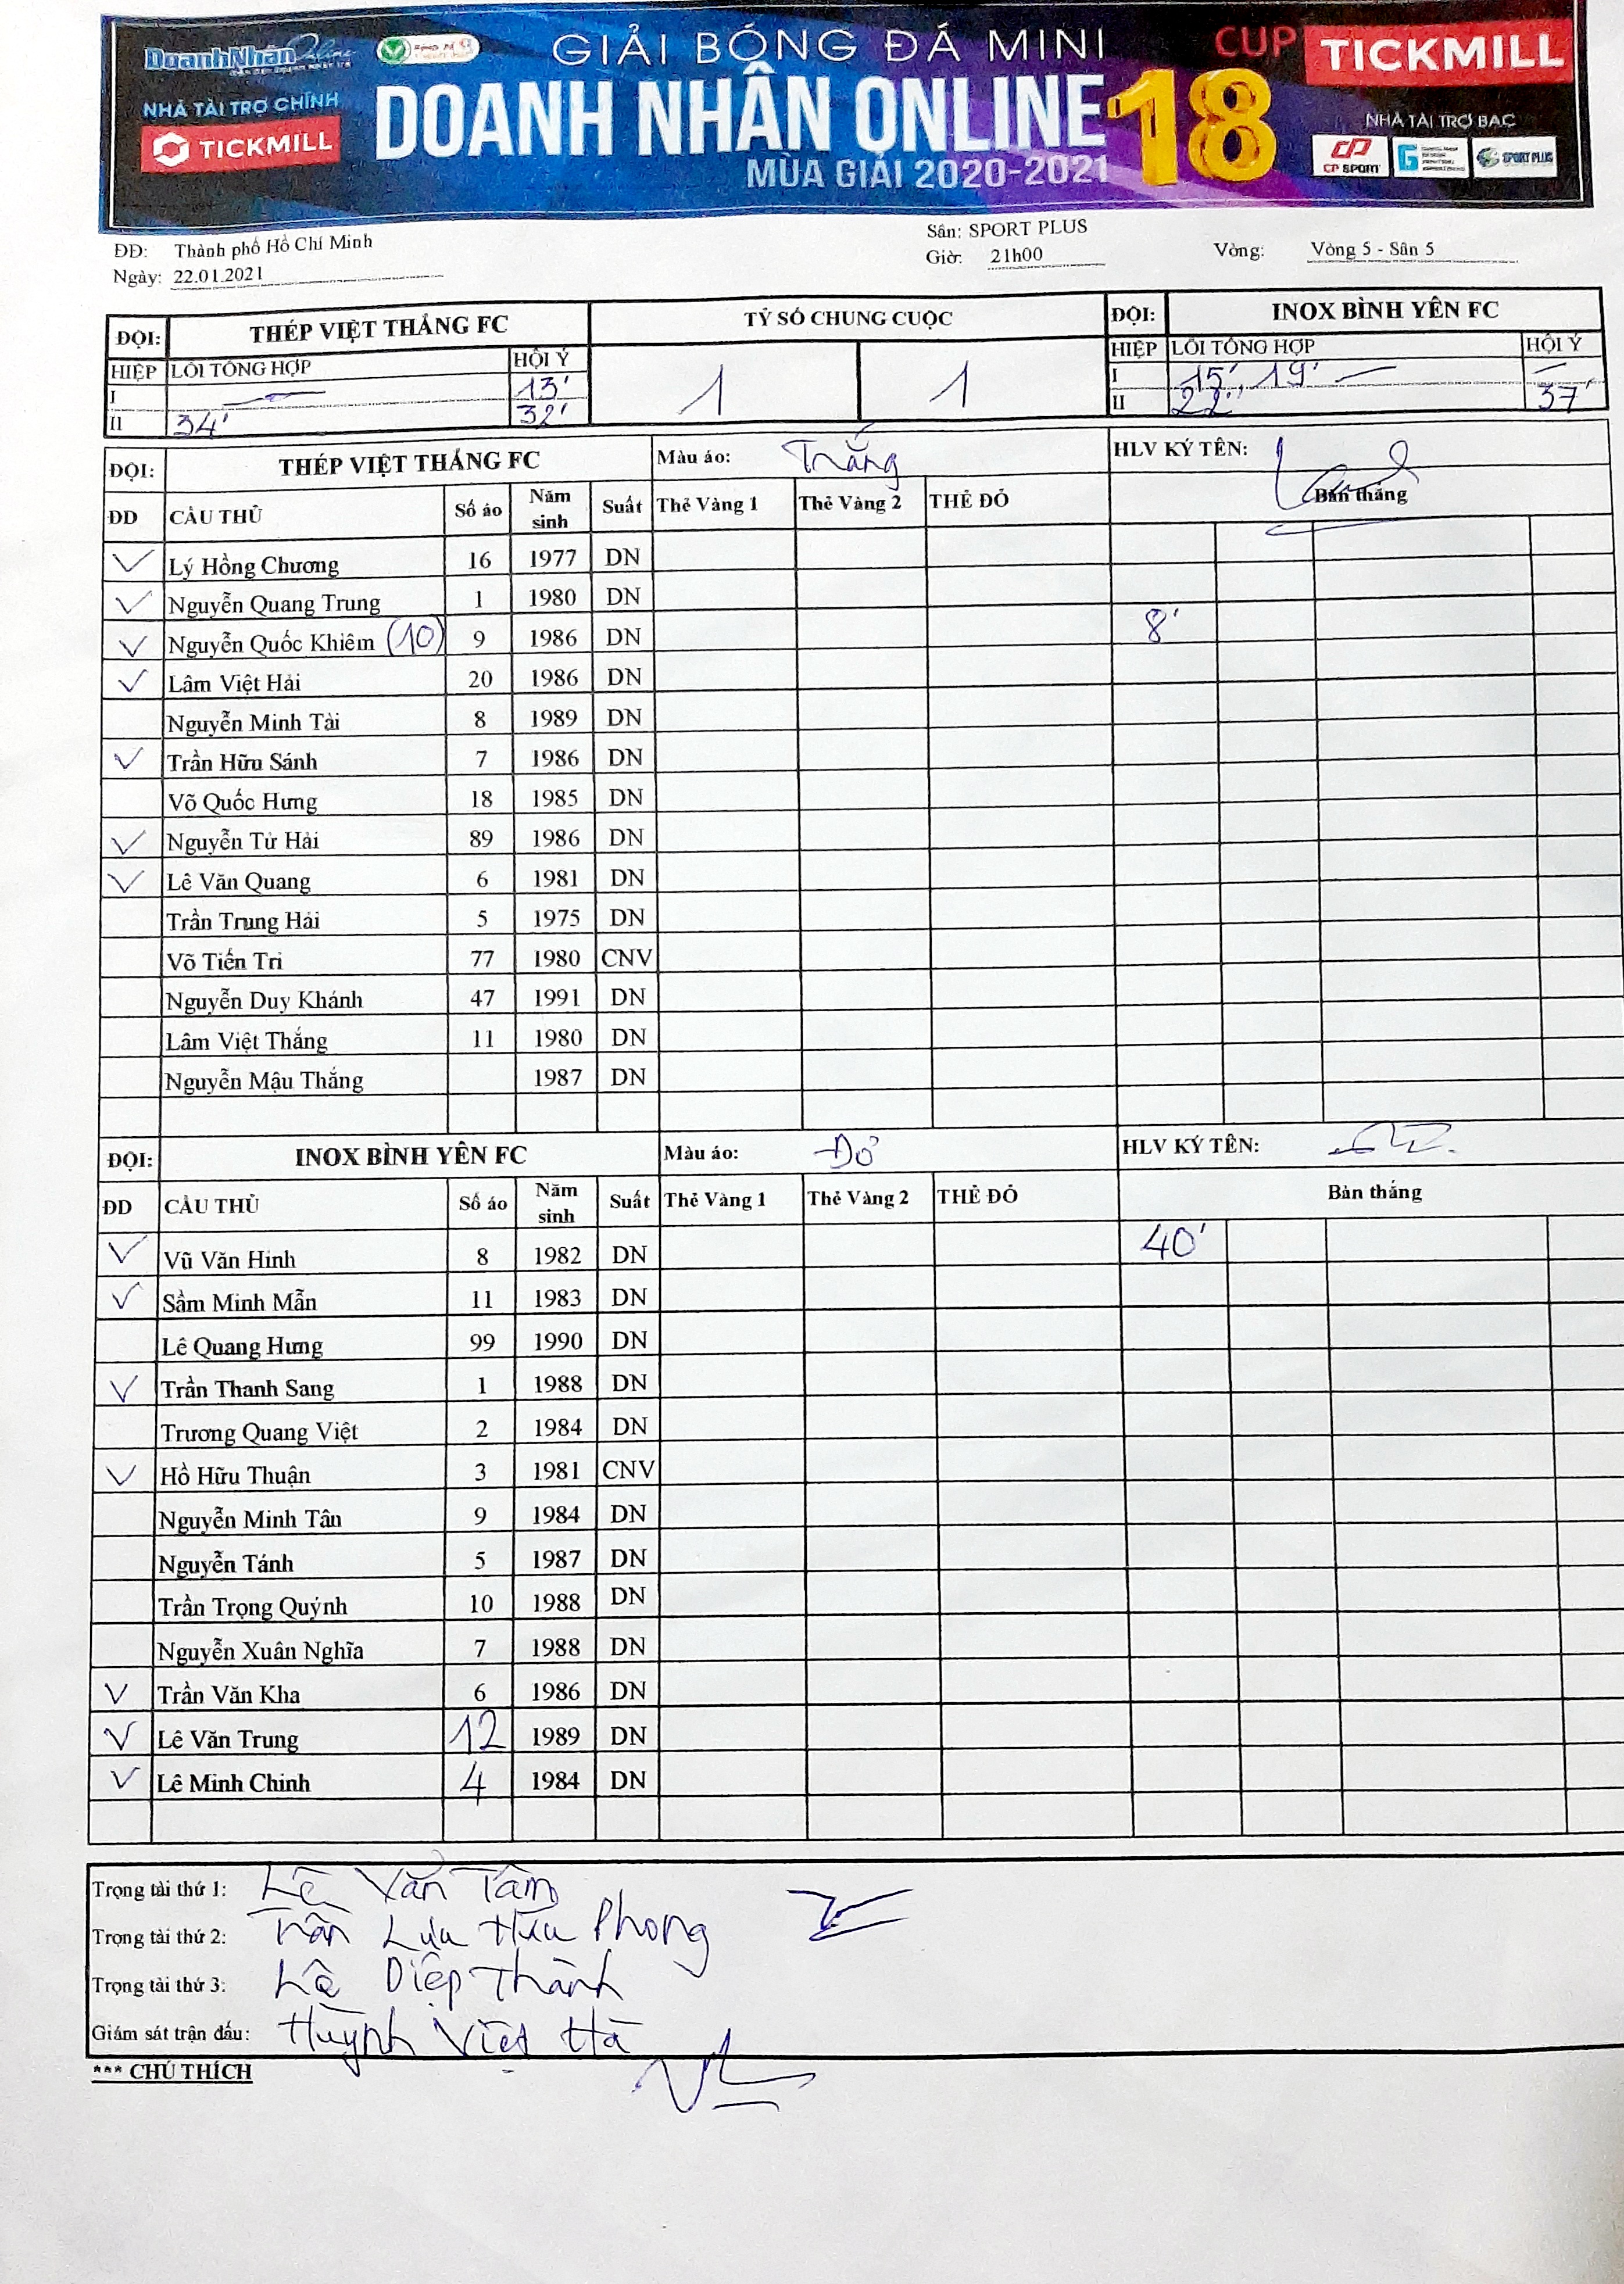 DoanhNhân Online
GIẢI BÓNG ĐÁ MINI
CUP TICKMILL
NHÀ TÀI TRỢ CHÍNH
TICKMILL
DOANH NHÂN ONLINE 18
MÙA GIẢI 2020-2021
NHÀ TÀI TRỢ BẠC
CP SPORT
SPORT PLUS
ĐĐ: Thành phố Hồ Chí Minh
Sân: SPORT PLUS
Ngày: 22.01.2021
Giờ: 21h00
Vòng: Vòng 5 - Sân 5
ĐỘI: THÉP VIỆT THẮNG FC TỶ SỐ CHUNG CUỘC ĐỘI: INOX BÌNH YÊN FC
HIỆP LỖI TỔNG HỢP HỘI Ý 1 1 HIỆP LỖI TỔNG HỢP HỘI Ý
I — 13' I 15', 19' — —
II 34' 32' II 22' 37'
ĐỘI: THÉP VIỆT THẮNG FC Màu áo: Trắng HLV KÝ TÊN:
ĐD CẦU THỦ Số áo Năm sinh Suất Thẻ Vàng 1 Thẻ Vàng 2 THẺ ĐỎ Bàn thắng
✓ Lý Hồng Chương 16 1977 DN
✓ Nguyễn Quang Trung 1 1980 DN
✓ Nguyễn Quốc Khiêm (10) 9 1986 DN 8'
✓ Lâm Việt Hải 20 1986 DN
Nguyễn Minh Tài 8 1989 DN
✓ Trần Hữu Sánh 7 1986 DN
Võ Quốc Hưng 18 1985 DN
✓ Nguyễn Từ Hải 89 1986 DN
✓ Lê Văn Quang 6 1981 DN
Trần Trung Hải 5 1975 DN
Võ Tiến Tri 77 1980 CNV
Nguyễn Duy Khánh 47 1991 DN
Lâm Việt Thắng 11 1980 DN
Nguyễn Mậu Thắng 1987 DN
ĐỘI: INOX BÌNH YÊN FC Màu áo: Đỏ HLV KÝ TÊN:
ĐD CẦU THỦ Số áo Năm sinh Suất Thẻ Vàng 1 Thẻ Vàng 2 THẺ ĐỎ Bàn thắng
✓ Vũ Văn Hinh 8 1982 DN 40'
✓ Sầm Minh Mẫn 11 1983 DN
Lê Quang Hưng 99 1990 DN
✓ Trần Thanh Sang 1 1988 DN
Trương Quang Việt 2 1984 DN
✓ Hồ Hữu Thuận 3 1981 CNV
Nguyễn Minh Tân 9 1984 DN
Nguyễn Tánh 5 1987 DN
Trần Trọng Quýnh 10 1988 DN
Nguyễn Xuân Nghĩa 7 1988 DN
✓ Trần Văn Kha 6 1986 DN
✓ Lê Văn Trung 12 1989 DN
✓ Lê Minh Chinh 4 1984 DN
Trọng tài thứ 1: Lê Văn Tâm
Trọng tài thứ 2: Trần Lưu Hữu Phong
Trọng tài thứ 3: Lê Diệp Thành
Giám sát trận đấu: Huỳnh Việt Hà
*** CHÚ THÍCH